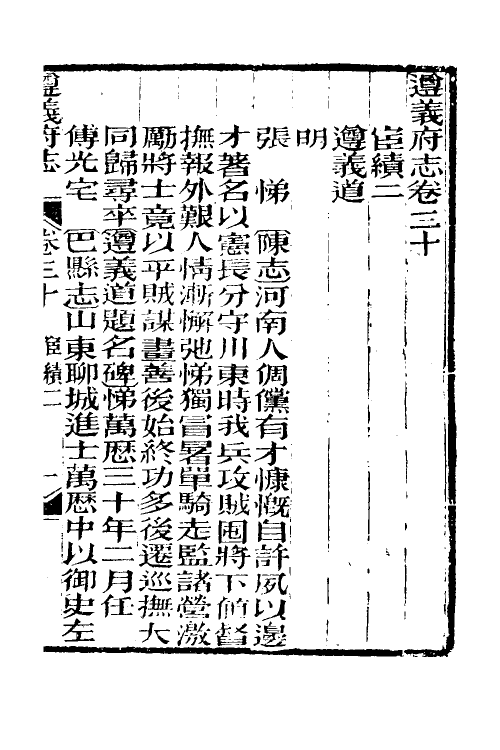 遵義府志卷三十
宦績二
遵義道
明
張悌 陳志河南人倜儻有才慷慨自許夙以邊
才著名以憲長分守川東時我兵攻賊囤將下值督
撫報外艱人情漸懈弛悌獨冒暑單騎走監諸營激
勵將士竟以平賊謀畫善後始終功多後遷巡撫大
同歸尋卒遵義道題名碑悌萬歷三十年二月任
傅光宅 巴縣志山東聊城進士萬歷中以御史左
遵義府志 卷三十 宦績二 一